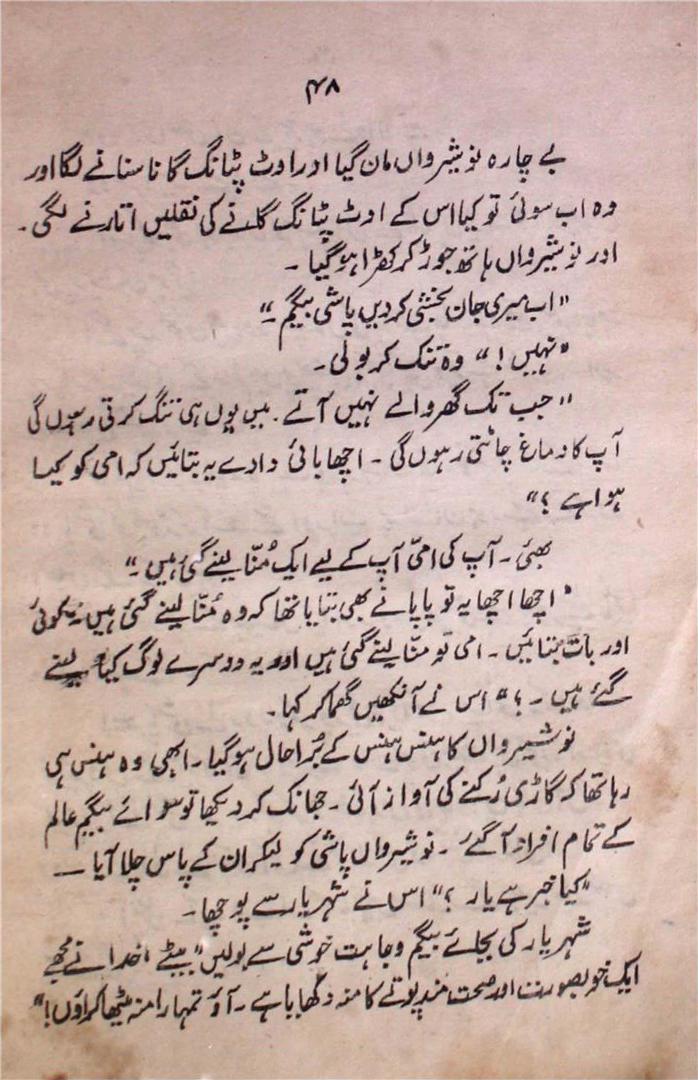 ۴۸
بے چارہ نوشیرواں مان گیا اور اوٹ پٹانگ گانا سنانے لگا اور
وہ اب سوئی تو کیا اس کے اوٹ پٹانگ گانے کی نقلیں اتارنے لگی۔
اور نوشیرواں ہاتھ جوڑ کر کھڑا ہو گیا ۔
"اب میری جان بخشی کر دیں پاشی بیگم ۔"
"نہیں !" وہ تنک کر بولی ۔
"جب تک گھر والے نہیں آتے ۔ میں یوں ہی تنگ کرتی رہوں گی
آپ کا دماغ چاٹتی رہوں گی ۔ اچھا بائی دا وے یہ بتائیں کہ امی کو کیا
ہوا ہے ؟"
بھئی ۔ آپ کی امیّ آپ کے لیے ایک مُنّا لینے گئی ہیں ۔"
"اچھا اچھا یہ تو پاپا نے بھی بتایا تھا کہ وہ مُنّا لینے گئی ہیں ۔ کوئی
اور بات بتائیں ۔ امی تو منّا لینے گئی ہیں اور یہ دوسرے لوگ کیا لینے
گئے ہیں ۔ ؟" اس نے آنکھیں گھما کر کہا ۔
نوشیرواں کا ہنس ہنس کے بُرا حال ہو گیا ۔ ابھی وہ ہنس ہی
رہا تھا کہ گاڑی رُکنے کی آواز آئی ۔ جھانک کر دیکھا تو سوائے بیگم عالم
کے تمام افراد آ گئے ۔ نوشیرواں پاشی کو لیکر ان کے پاس چلا آیا ــــ
"کیا خبر ہے یار ؟" اس نے شہریار سے پوچھا ۔
شہریار کی بجائے بیگم وجاہت خوشی سے بولیں "بیٹے ! خدا نے مجھے
ایک خوبصورت اور صحت مند پوتے کا منہ دکھایا ہے ۔ آؤ تمہارا منہ میٹھا کراؤں !"